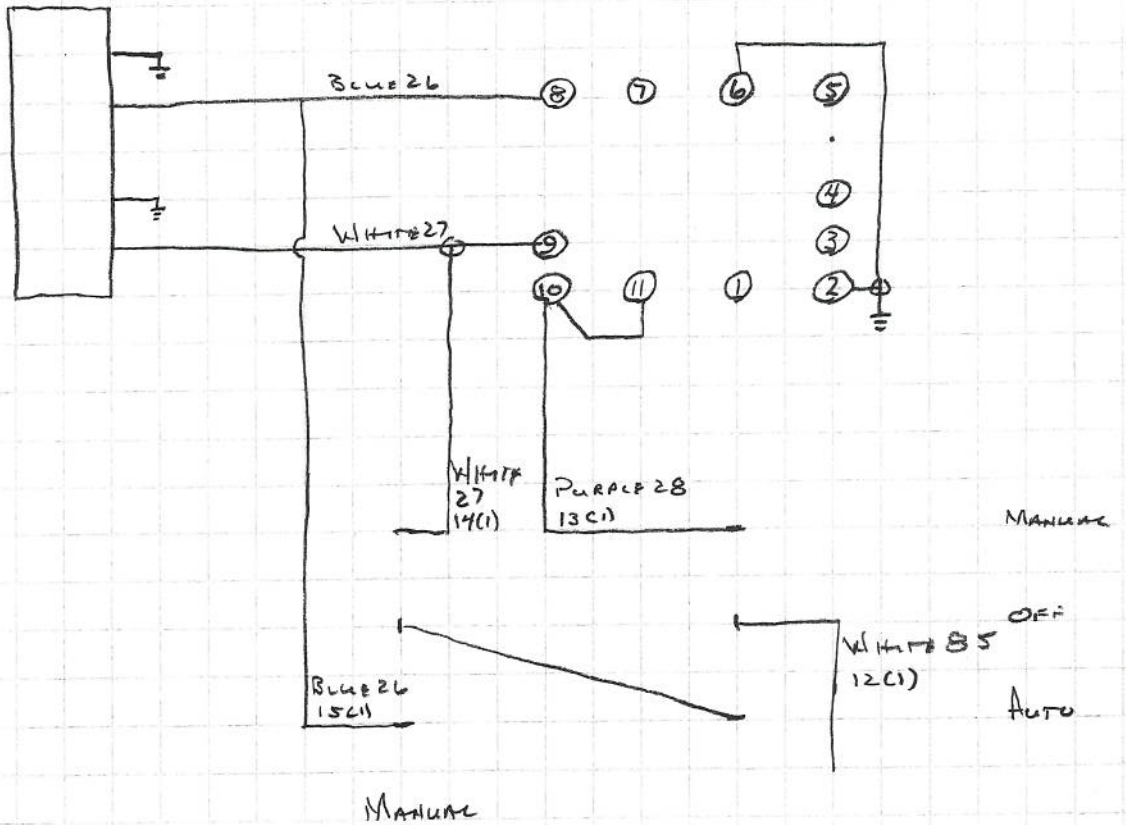 BLUE 26
8 7 6 5
4
WHITE 27
9
3
10 11 1 2
WHITE
27
14(1)
PURPLE 28
13(1)
MANUAL
OFF
WHITE 85
12(1)
BLUE 26
15(1)
AUTO
MANUAL